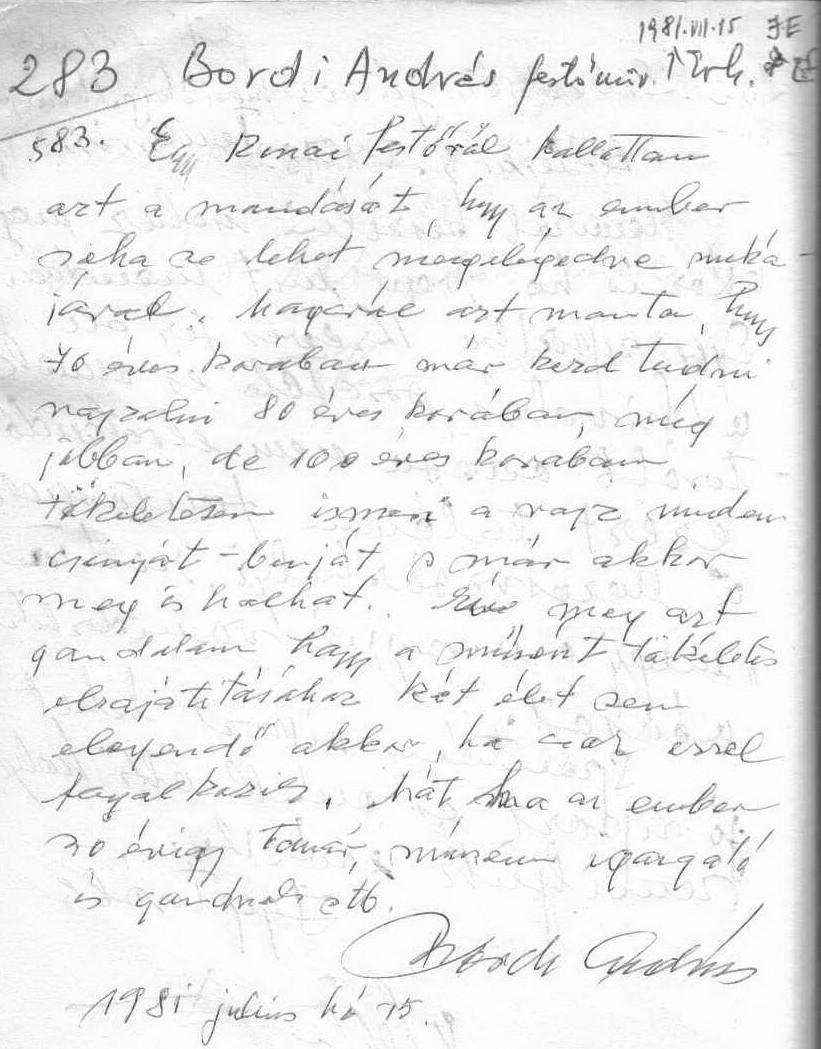 1981.VII.15 JE
283 Bordi András festőműv. Mvh.
583. Egy kinai festőről hallottam
azt a mondását, hogy az ember
soha se lehet megelégedve munká-
jával. Magáról azt monta, hogy
70 éves korában már kezd tudni
rajzolni 80 éves korában, még
jobban, de 100 éves korában
tökéletesen ismeri a rajz minden
csinyát-binját s már akkor
meg is halhat. Én meg azt
gondolom hogy a művészet tökéletes
elsajátításához két élet sem
elegendő akkor, ha csak ezzel
foglalkozik, hát ha az ember
30 évig tanár, múzeum igazgató
is gondnok stb.
Bordi András
1981 julius hó 15.